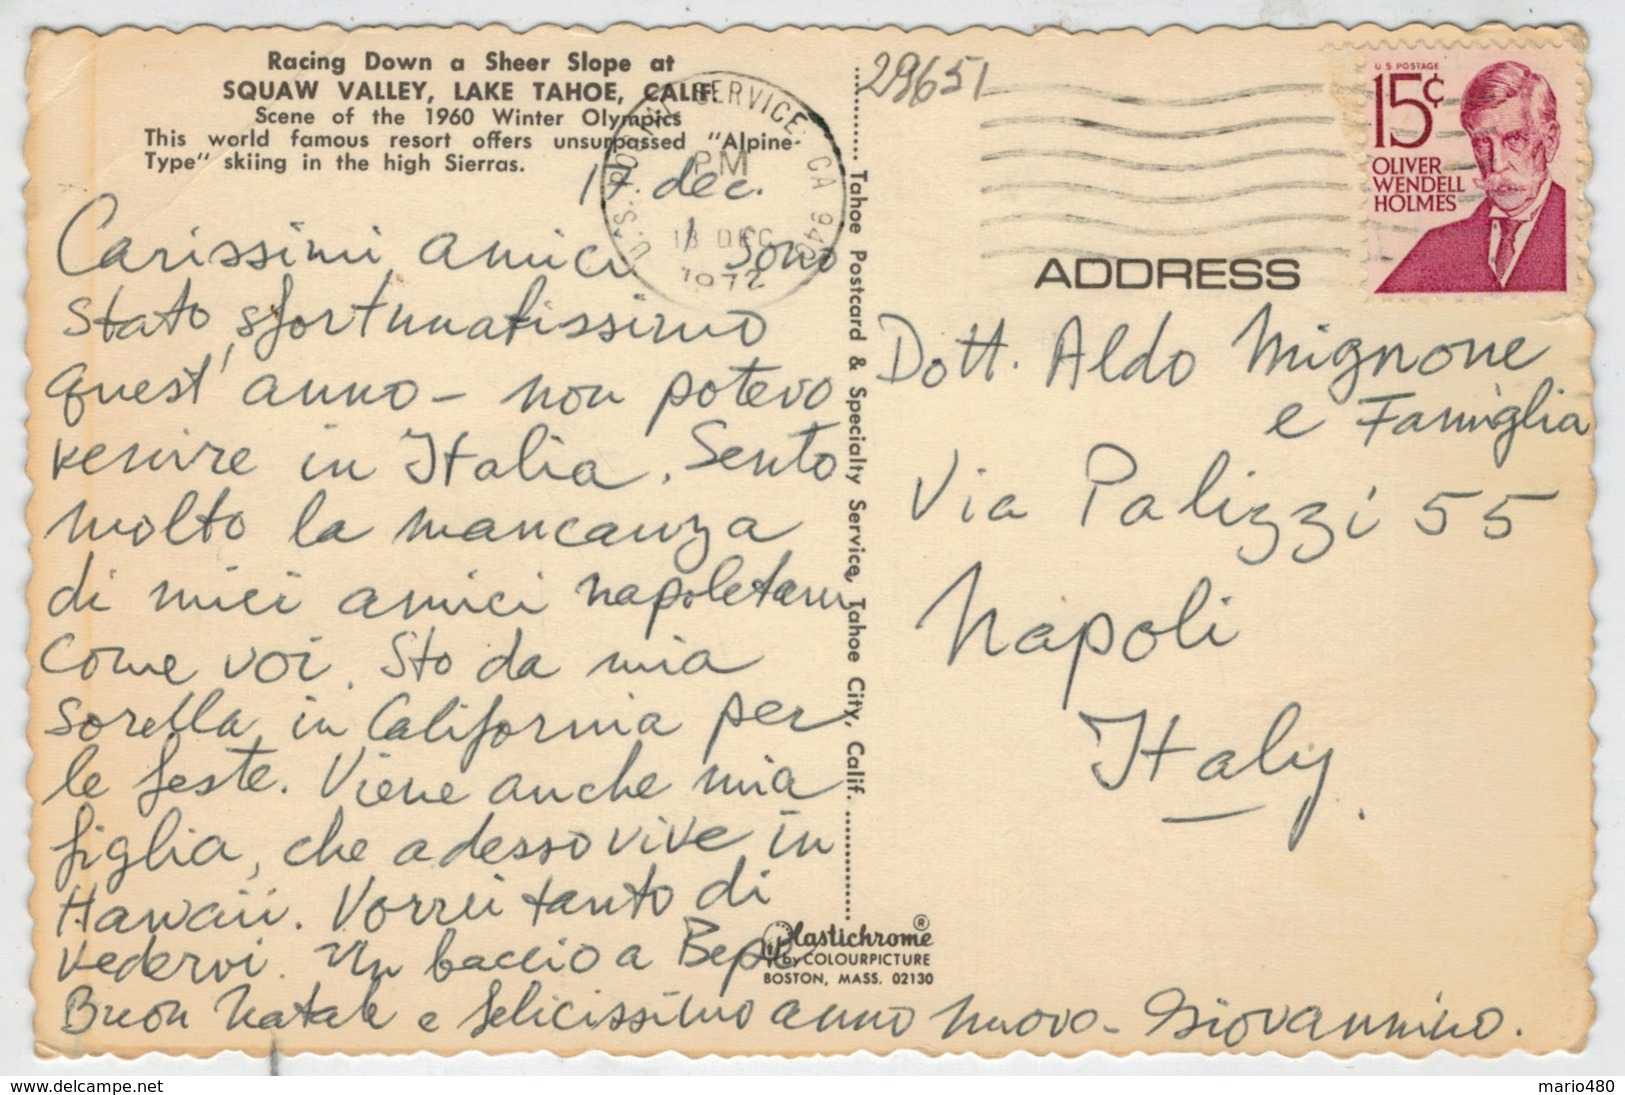 Racing Down a Sheer Slope at
SQUAW VALLEY, LAKE TAHOE, CALIF.
Scene of the 1960 Winter Olympics
This world famous resort offers unsurpassed "Alpine-
Type" skiing in the high Sierras.
17 dec.
Carissimi amici, Sono
stato sfortunatissimo
quest' anno - non potevo
venire in Italia. Sento
molto la mancanza
di miei amici napoletani
come voi. Sto da mia
sorella in California per
le feste. Viene anche mia
figlia, che adesso vive in
Hawaii. Vorrei tanto di
vedervi. Un baccio a Beppe
Buon Natale e felicissimo anno nuovo - Giovannino.
U.S. POSTAL SERVICE, CA 940
PM
18 DEC
1972
29651
U S POSTAGE
15¢
OLIVER
WENDELL
HOLMES
ADDRESS
Dott. Aldo Mignone
e Famiglia
Via Palizzi 55
Napoli
Italy.
Tahoe Postcard & Specialty Service, Tahoe City, Calif.
Plastichrome®
by COLOURPICTURE
BOSTON, MASS. 02130
mario480